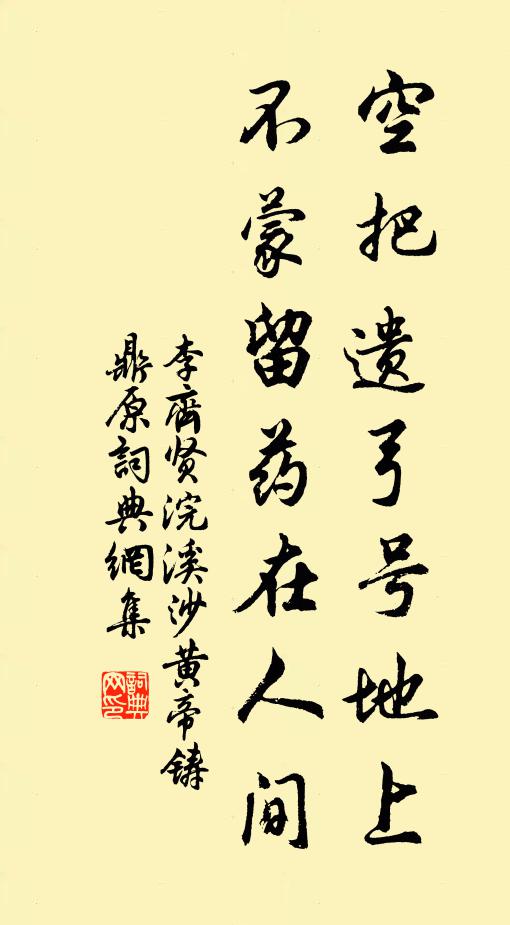 空把遗弓号地上
不蒙留药在人间
李齊贤浣溪沙黄帝铸
鼎原詞典網集
詞典
网印